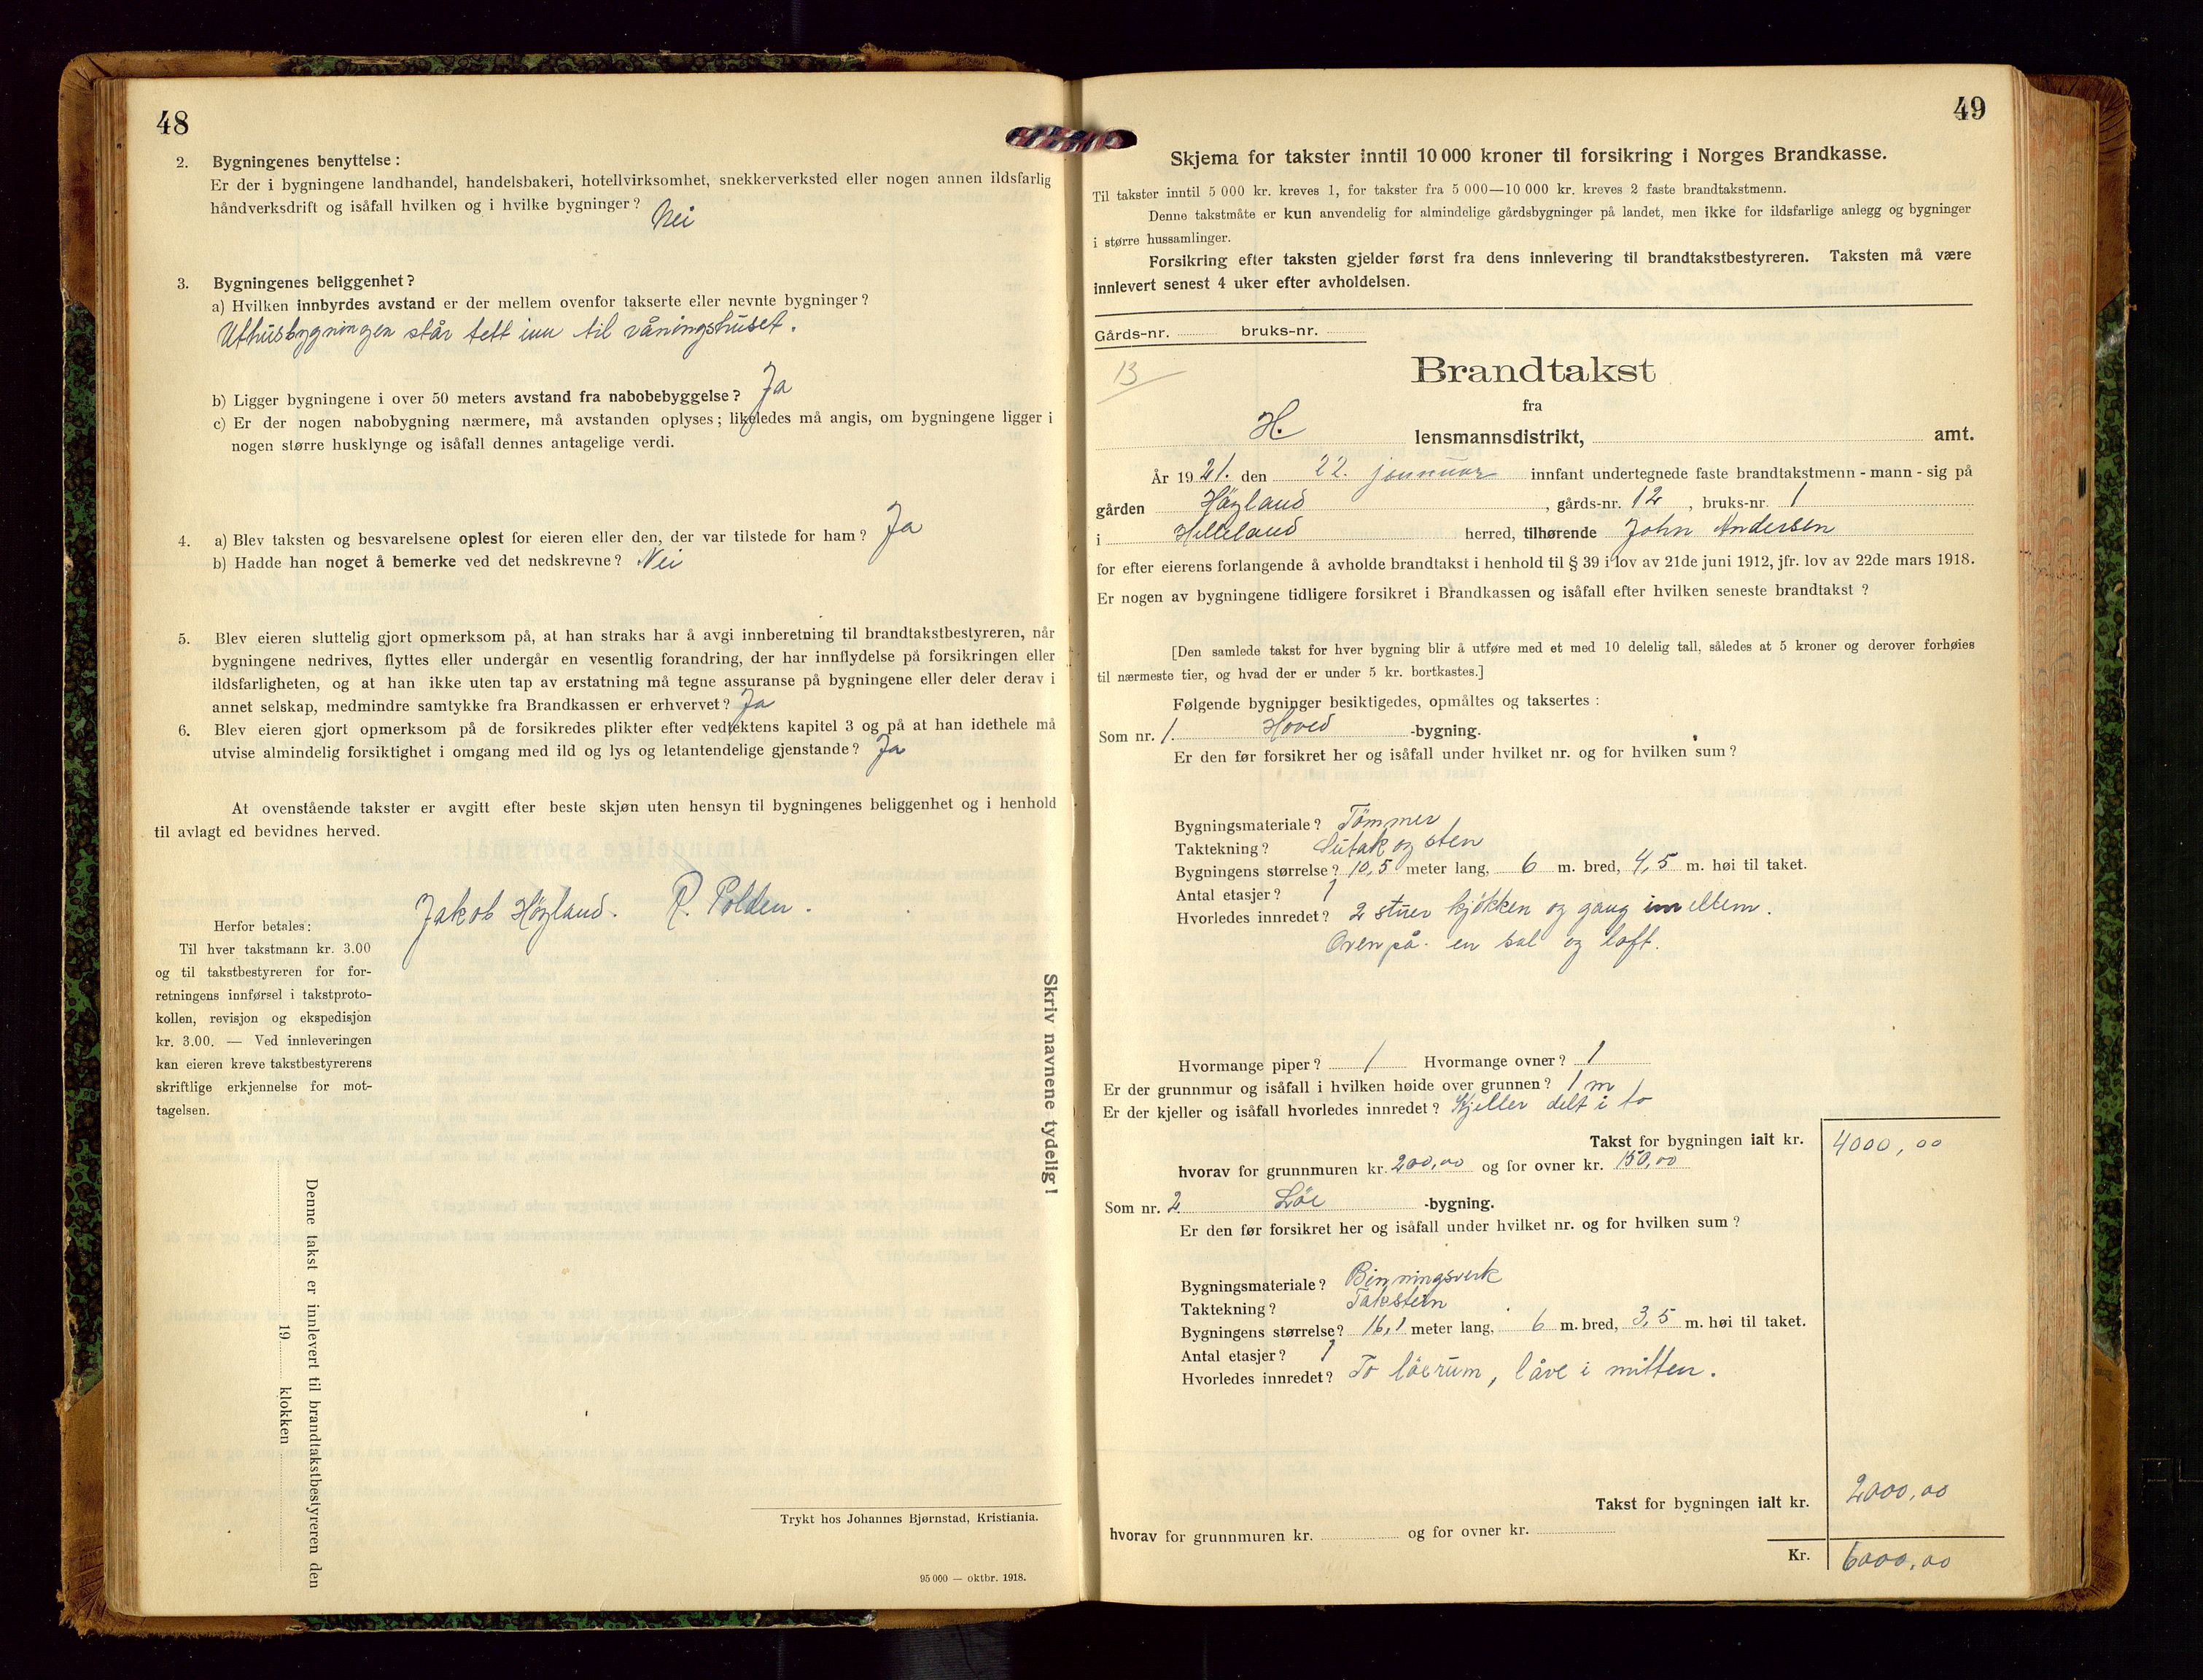 48
2. Bygningenes benyttelse:
Er der i bygningene landhandel, handelsbakeri, hotellvirksomhet, snekkerverksted eller nogen annen ildsfarlig
håndverksdrift og isåfall hvilken og i hvilke bygninger? Nei
3. Bygningenes beliggenhet?
a) Hvilken innbyrdes avstand er der mellem ovenfor takserte eller nevnte bygninger?
Uthusbygningen står tett inn til våningshuset.
b) Ligger bygningene i over 50 meters avstand fra nabobebyggelse? Ja
c) Er der nogen nabobygning nærmere, må avstanden oplyses; likeledes må angis, om bygningene ligger i
nogen større husklynge og isåfall dennes antagelige verdi.
4. a) Blev taksten og besvarelsene oplest for eieren eller den, der var tilstede for ham? Ja
b) Hadde han noget å bemerke ved det nedskrevne? Nei
5. Blev eieren sluttelig gjort opmerksom på, at han straks har å avgi innberetning til brandtakstbestyreren, når
bygningene nedrives, flyttes eller undergår en vesentlig forandring, der har innflydelse på forsikringen eller
ildsfarligheten, og at han ikke uten tap av erstatning må tegne assuranse på bygningene eller deler derav i
annet selskap, medmindre samtykke fra Brandkassen er erhvervet? Ja
6. Blev eieren gjort opmerksom på de forsikredes plikter efter vedtektens kapitel 3 og på at han idethele må
utvise almindelig forsiktighet i omgang med ild og lys og letantendelige gjenstande? Ja
At ovenstående takster er avgitt efter beste skjøn uten hensyn til bygningenes beliggenhet og i henhold
til avlagt ed bevidnes herved.
Jakob Höyland. R. Polden.
Herfor betales:
Til hver takstmann kr. 3.00
og til takstbestyreren for for-
retningens innførsel i takstproto-
kollen, revisjon og ekspedisjon
kr. 3.00. — Ved innleveringen
kan eieren kreve takstbestyrerens
skriftlige erkjennelse for mot-
tagelsen.
Skriv navnene tydelig!
Denne takst er innlevert til brandtakstbestyreren den
19 klokken
Trykt hos Johannes Bjørnstad, Kristiania.
95 000 — oktbr. 1918.
49
Skjema for takster inntil 10 000 kroner til forsikring i Norges Brandkasse.
Til takster inntil 5 000 kr. kreves 1, for takster fra 5 000—10 000 kr. kreves 2 faste brandtakstmenn.
Denne takstmåte er kun anvendelig for almindelige gårdsbygninger på landet, men ikke for ildsfarlige anlegg og bygninger
i større hussamlinger.
Forsikring efter taksten gjelder først fra dens innlevering til brandtakstbestyreren. Taksten må være
innlevert senest 4 uker efter avholdelsen.
Gårds-nr. bruks-nr.
13
Brandtakst
fra
H. lensmannsdistrikt, amt.
År 1921. den 22. januar innfant undertegnede faste brandtakstmenn - mann - sig på
gården Höyland, gårds-nr. 12, bruks-nr. 1
i Helleland herred, tilhørende John Andersen
for efter eierens forlangende å avholde brandtakst i henhold til § 39 i lov av 21de juni 1912, jfr. lov av 22de mars 1918.
Er nogen av bygningene tidligere forsikret i Brandkassen og isåfall efter hvilken seneste brandtakst?
[Den samlede takst for hver bygning blir å utføre med et med 10 delelig tall, således at 5 kroner og derover forhøies
til nærmeste tier, og hvad der er under 5 kr. bortkastes.]
Følgende bygninger besiktigedes, opmåltes og taksertes:
Som nr. 1. Hoved -bygning.
Er den før forsikret her og isåfall under hvilket nr. og for hvilken sum?
Bygningsmateriale? Tömmer
Taktekning? Sutak og sten
Bygningens størrelse? 10,5 meter lang, 6 m. bred, 4,5 m. høi til taket.
Antal etasjer? 1
Hvorledes innredet? 2 stuer kjøkken og gang imellem.
Ovenpå en sal og loft.
Hvormange piper? 1 Hvormange ovner? 1
Er der grunnmur og isåfall i hvilken høide over grunnen? 1 m
Er der kjeller og isåfall hvorledes innredet? Kjeller delt i to
Takst for bygningen ialt kr. 4000,00
hvorav for grunnmuren kr. 200,00 og for ovner kr. 150,00
Som nr. 2 Löe -bygning.
Er den før forsikret her og isåfall under hvilket nr. og for hvilken sum?
Bygningsmateriale? Binningsverk
Taktekning? Takstein
Bygningens størrelse? 16,1 meter lang, 6 m. bred, 3,5 m. høi til taket.
Antal etasjer? 1
Hvorledes innredet? To löerum, låve i mitten.
Takst for bygningen ialt kr. 2000,00
hvorav for grunnmuren kr. og for ovner kr.
Kr. 6000,00